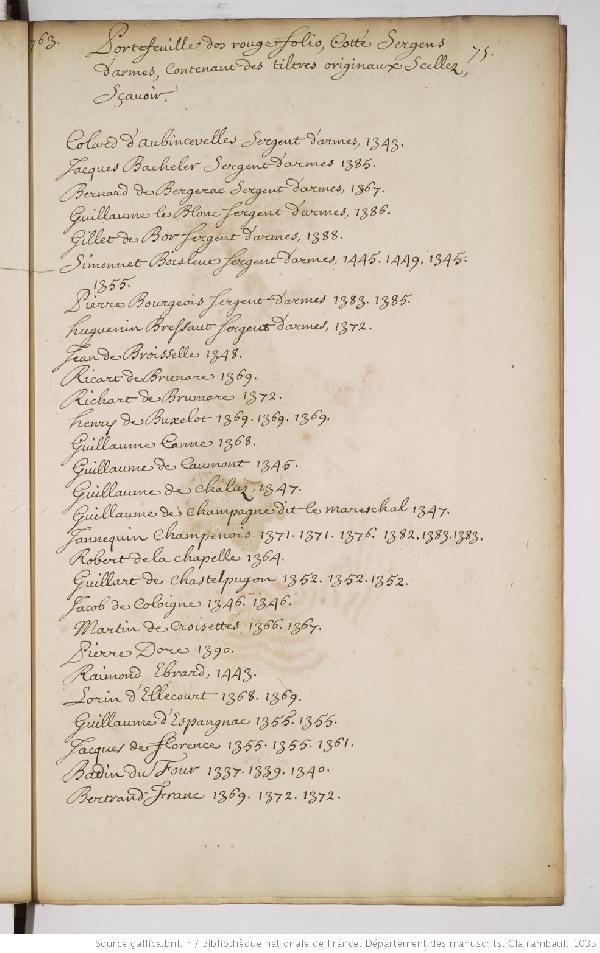 763.
75.
Portefeuille dos rouge folio, Cotté Sergens
d'armes, Contenant des tiltres originaux Scellez,
Sçavoir.
Colard d'aubincevelles Sergent d'armes, 1343.
Jacques Bacheler Sergent d'armes 1385.
Bernard de Bergerac Sergent d'armes, 1367.
Guillaume le Blonc Sergent d'armes, 1386.
Gillet de Bor Sergent d'armes, 1388.
Simonnet Boisleue Sergent d'armes, 1445. 1449. 1345.
1355.
Pierre Bourgeois Sergent d'armes 1383. 1385.
huguenin Bressaut Sergent d'armes, 1372.
Jean de Broisselle 1348.
Ricart de Brumare 1369.
Richart de Brumore 1372.
henry de Buxelot 1369. 1369. 1369.
Guillaume Canne 1368.
Guillaume de Caumont 1345.
Guillaume de Chaluz 1347.
Guillaume de Champagne dit le mareschal 1347.
Jannequin Champenois 1371. 1371. 1376. 1382. 1383. 1383.
Robert de la chapelle 1364.
Guillart de Chastelpugon 1352. 1352. 1352.
Jacob de Cologne 1346. 1346.
Martin de Croisettes 1366. 1367.
Pierre Dore 1390.
Raimond Ebrard, 1443.
Lorin d'Ellecourt 1368. 1369.
Guillaume d'Espangnac 1355. 1355.
Jacques de florence 1355. 1355. 1361.
Badin du Four 1337. 1339. 1340.
Bertrand Franc 1369. 1372. 1372.
Source gallica.bnf.fr / Bibliothèque nationale de France. Département des manuscrits. Clairambault 1035